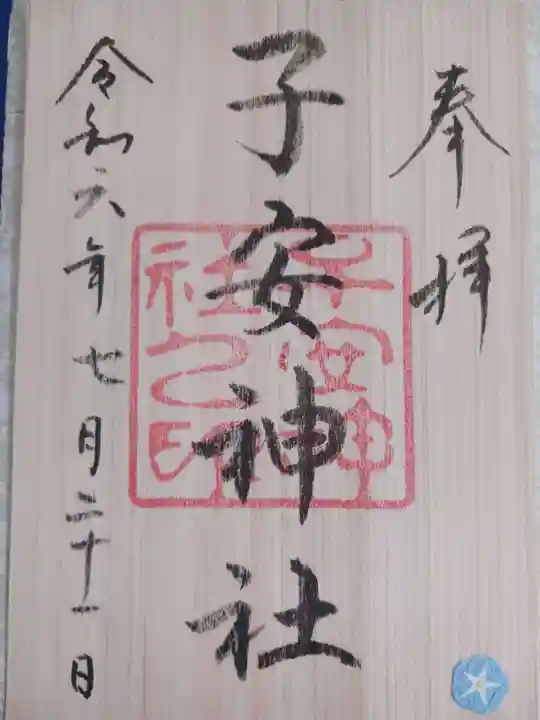 奉拝
子安神社
子安神
社之印
令和六年七月二十一日